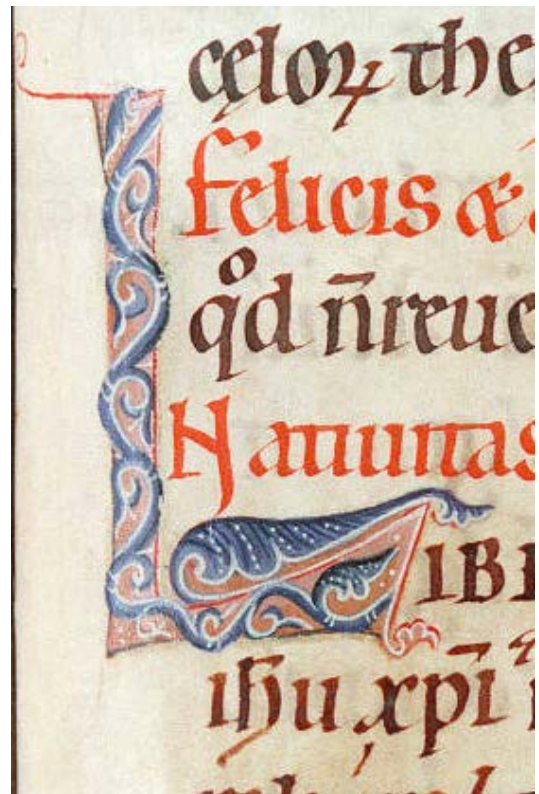 cęloꝝ the
felicis &
qͦd n̄ reue
Natiuitas
LIBE
ihu xp̄i